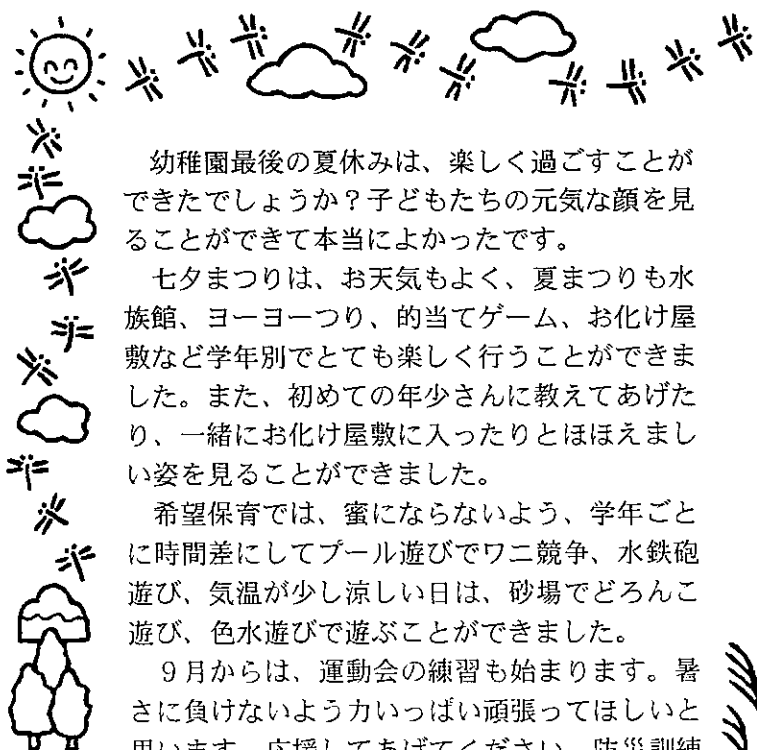 幼稚園最後の夏休みは、楽しく過ごすことが
できたでしょうか？子どもたちの元気な顔を見
ることができて本当によかったです。
七夕まつりは、お天気もよく、夏まつりも水
族館、ヨーヨーつり、的当てゲーム、お化け屋
敷など学年別でとても楽しく行うことができま
した。また、初めての年少さんに教えてあげた
り、一緒にお化け屋敷に入ったりとほほえまし
い姿を見ることができました。
希望保育では、蜜にならないよう、学年ごと
に時間差にしてプール遊びでワニ競争、水鉄砲
遊び、気温が少し涼しい日は、砂場でどろんこ
遊び、色水遊びで遊ぶことができました。
９月からは、運動会の練習も始まります。暑
さに負けないよう力いっぱい頑張ってほしいと
思います。応援してあげてください。防災訓練